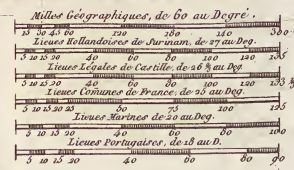 Milles Géographiques, de 60 au Degré.
15 30 45 60 120 180 240 300
Lieues Hollandoises de Surinam, de 27 au Deg.
5 10 15 20 40 60 80 100 135
Lieues Légales de Castille, de 26 ⅔ au Deg
5 10 15 20 40 60 80 100 133 ⅓
Lieues Comunes de France, de 25 au Deg.
5 10 15 20 25 50 75 100 125
Lieues Marines de 20 au Deg.
5 10 15 20 40 60 80 100
Lieues Portugaises, de 18 au D.
5 10 15 20 40 60 80 90